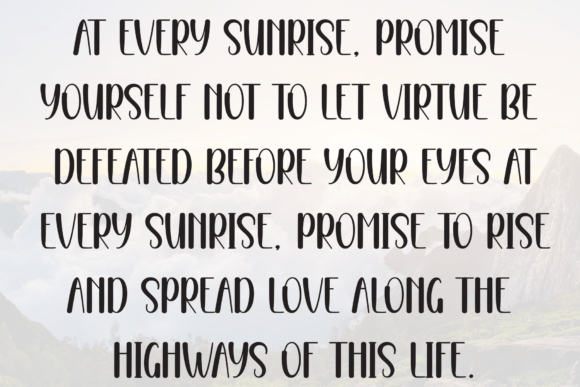 AT EVERY SUNRISE, PROMISE
YOURSELF NOT TO LET VIRTUE BE
DEFEATED BEFORE YOUR EYES AT
EVERY SUNRISE, PROMISE TO RISE
AND SPREAD LOVE ALONG THE
HIGHWAYS OF THIS LIFE.